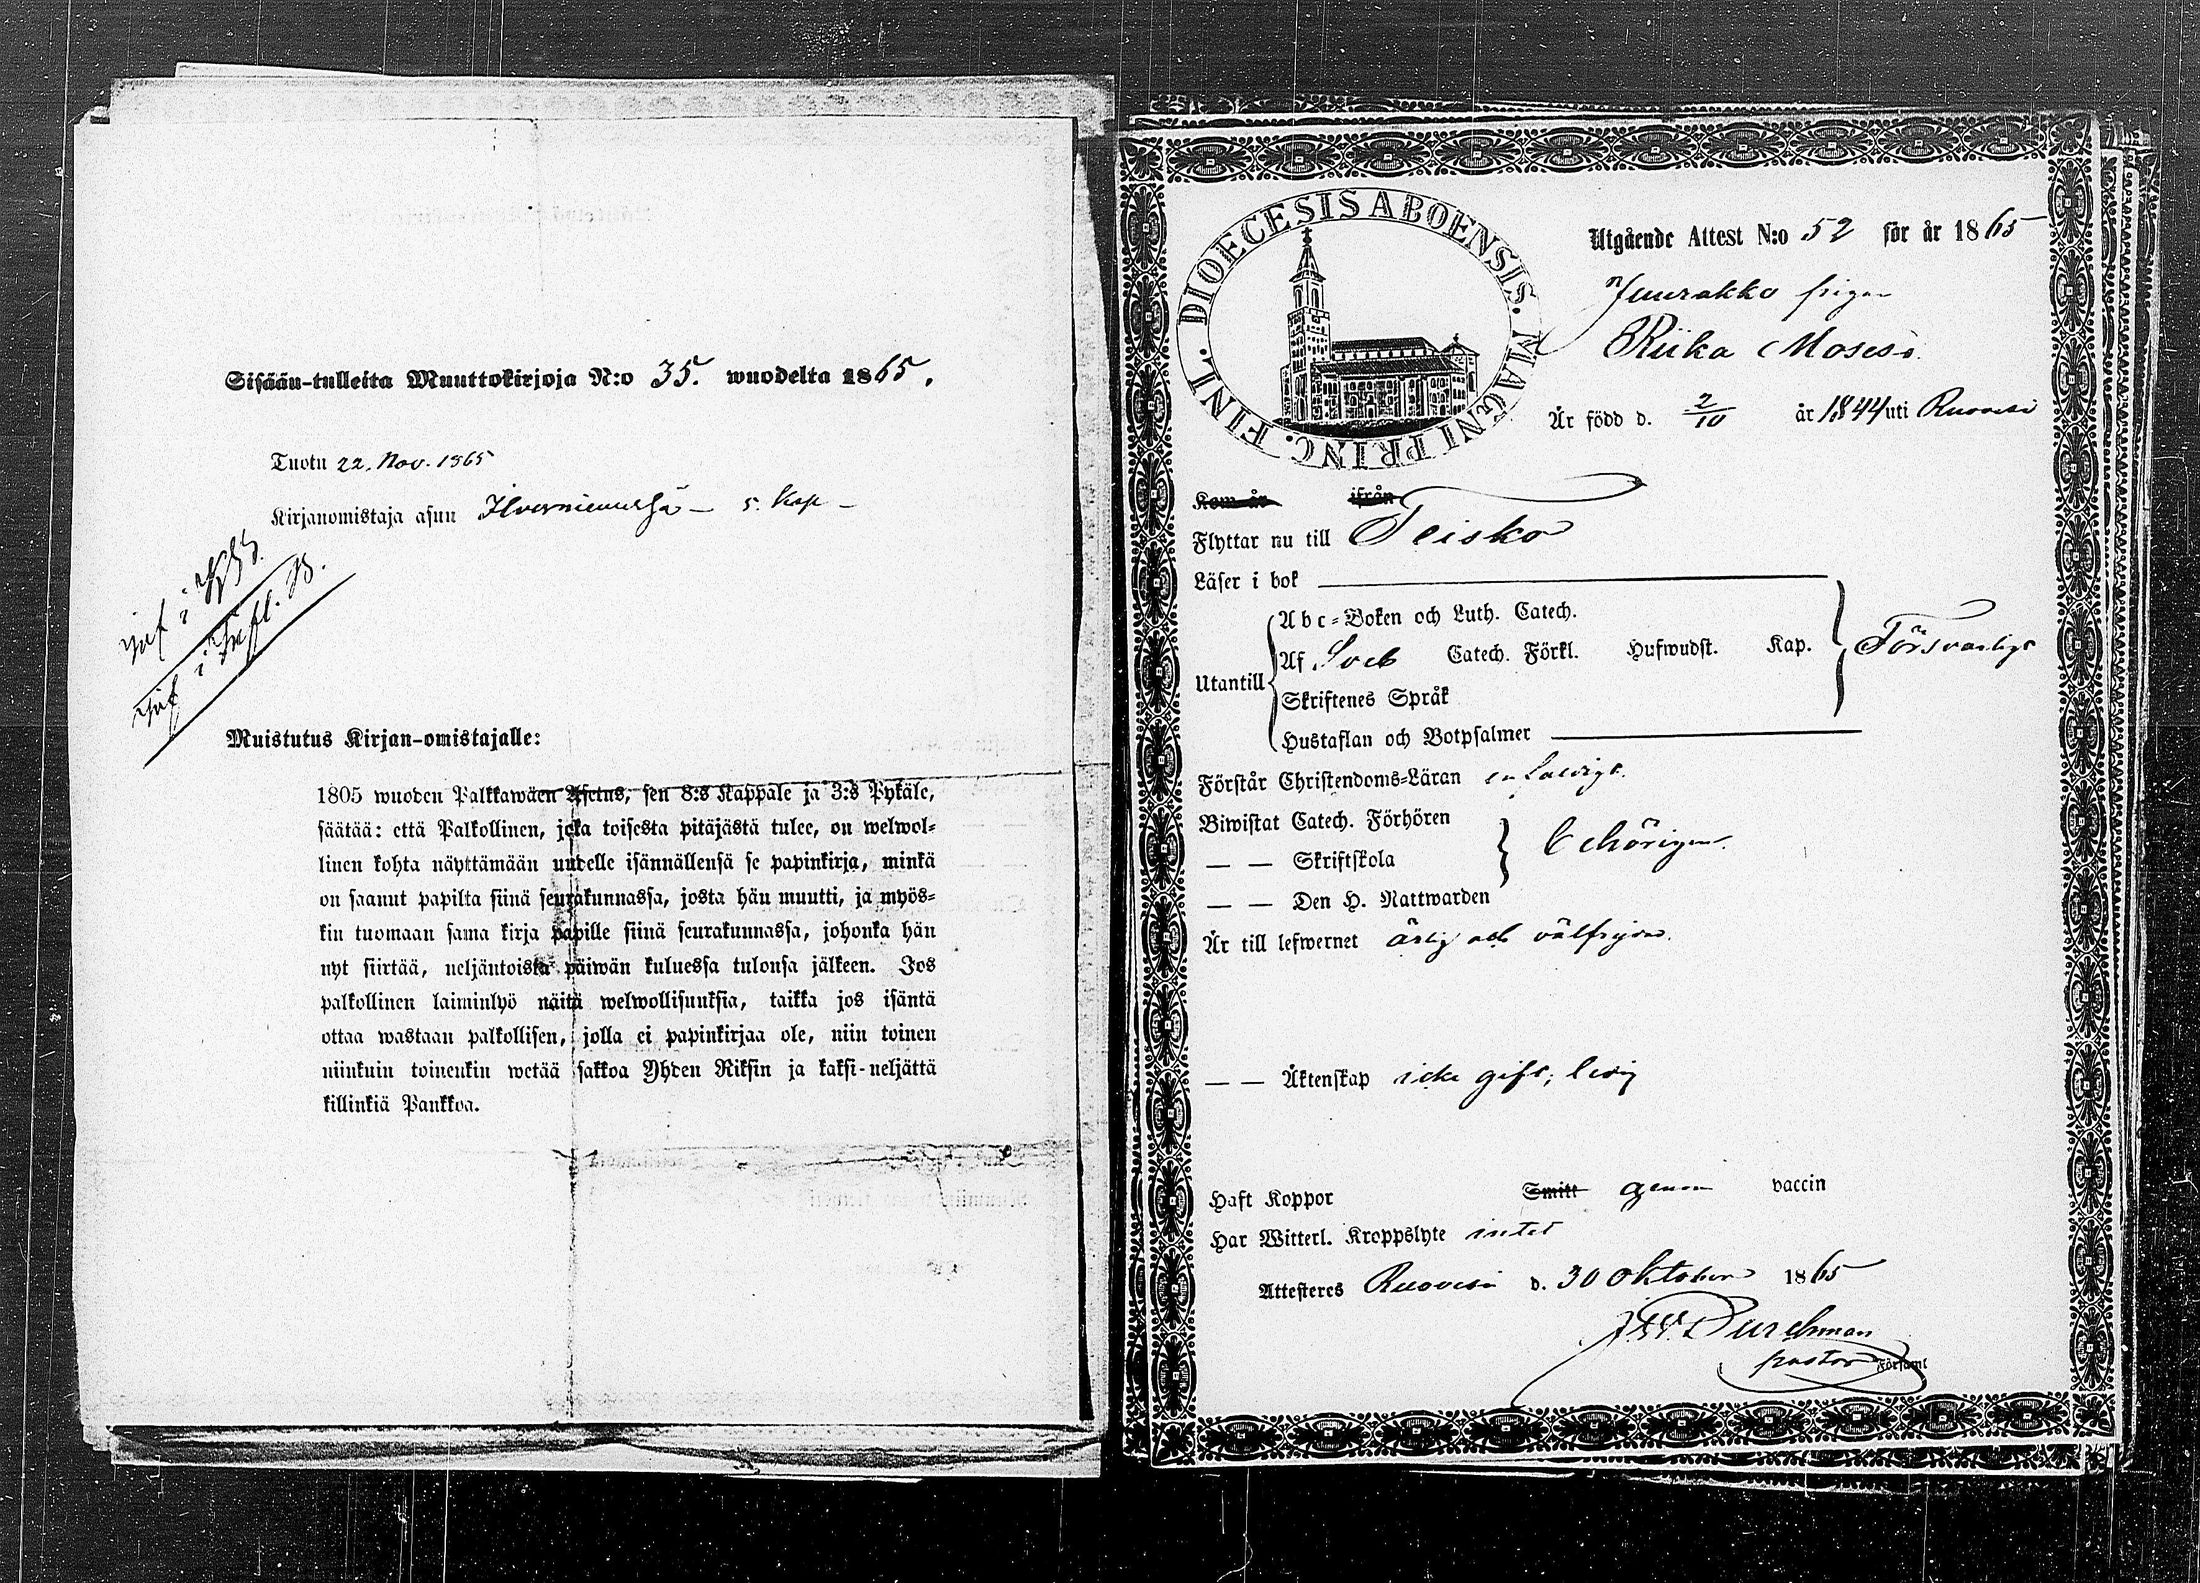 Sisään-tulleita Muuttokirjoja N:o 35. wuodelta 1865.
Tuotu 22. Nov. 1865
Kirjanomistaja asuu 5. Kap
Muistutus Kirjan-omistajalle:
1805 wuoden Palkkawäen Asetus, sen 8:s Kappale ja 3:s Pykäle,
säätää: että Palkollinen, joka toisesta pitäjästä tulee, on welwol-
linen kohta näyttämään uudelle isännällensä se papinkirja, minkä
on saanut papilta siinä seurakunnassa, josta hän muutti, ja myös-
kin tuomaan sama kirja papille siinä seurakunnassa, johonka hän
nyt siirtää, neljäntoista päiwän kuluessa tulonsa jälkeen. Jos
palkollinen laiminlyö näitä welwollisuuksia, taikka jos isäntä
ottaa wastaan palkollisen, jolla ei papinkirjaa ole, niin toinen
niinkuin toinenkin wetää sakkoa Yhden Riksin ja kaksi-neljättä
killinkiä Pankkoa.
DIOECESIS ABOENSIS. MAGNI PRINC. FINL.
Utgående Attest N:o 52 för år 1865
Juurakko pigan
Riika Moses
Är född d. 2/10 år 1844 uti Ruovesi
Kom år ifrån
Flyttar nu till Teisko
Läser i bok
Utantill
Abc-Boken och Luth. Catech.
Af Sveb Catech. Förkl. Hufwudst. Kap.
Skriftenes Språk
Hustaflan och Botpsalmer
Försvarligt
Förstår Christendoms-Läran enfaldigt.
Biwistat Catech. Förhören
— — Skriftskola
— — Den H. Nattwarden
behörigen.
Är till lefwernet ärlig och välfrejdad.
— — Äktenskap icke gift; ledig
Haft Koppor Smitt genom vaccin
Har Witterl. Kroppslyte intet
Attesteres Ruovesi d. 30 Oktober 1865
Durchman
pastor Församl